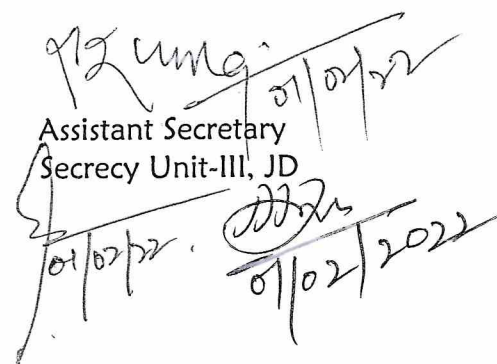 01/02/22
Assistant Secretary
Secrecy Unit-III, JD
01/02/22.
01/02/2022